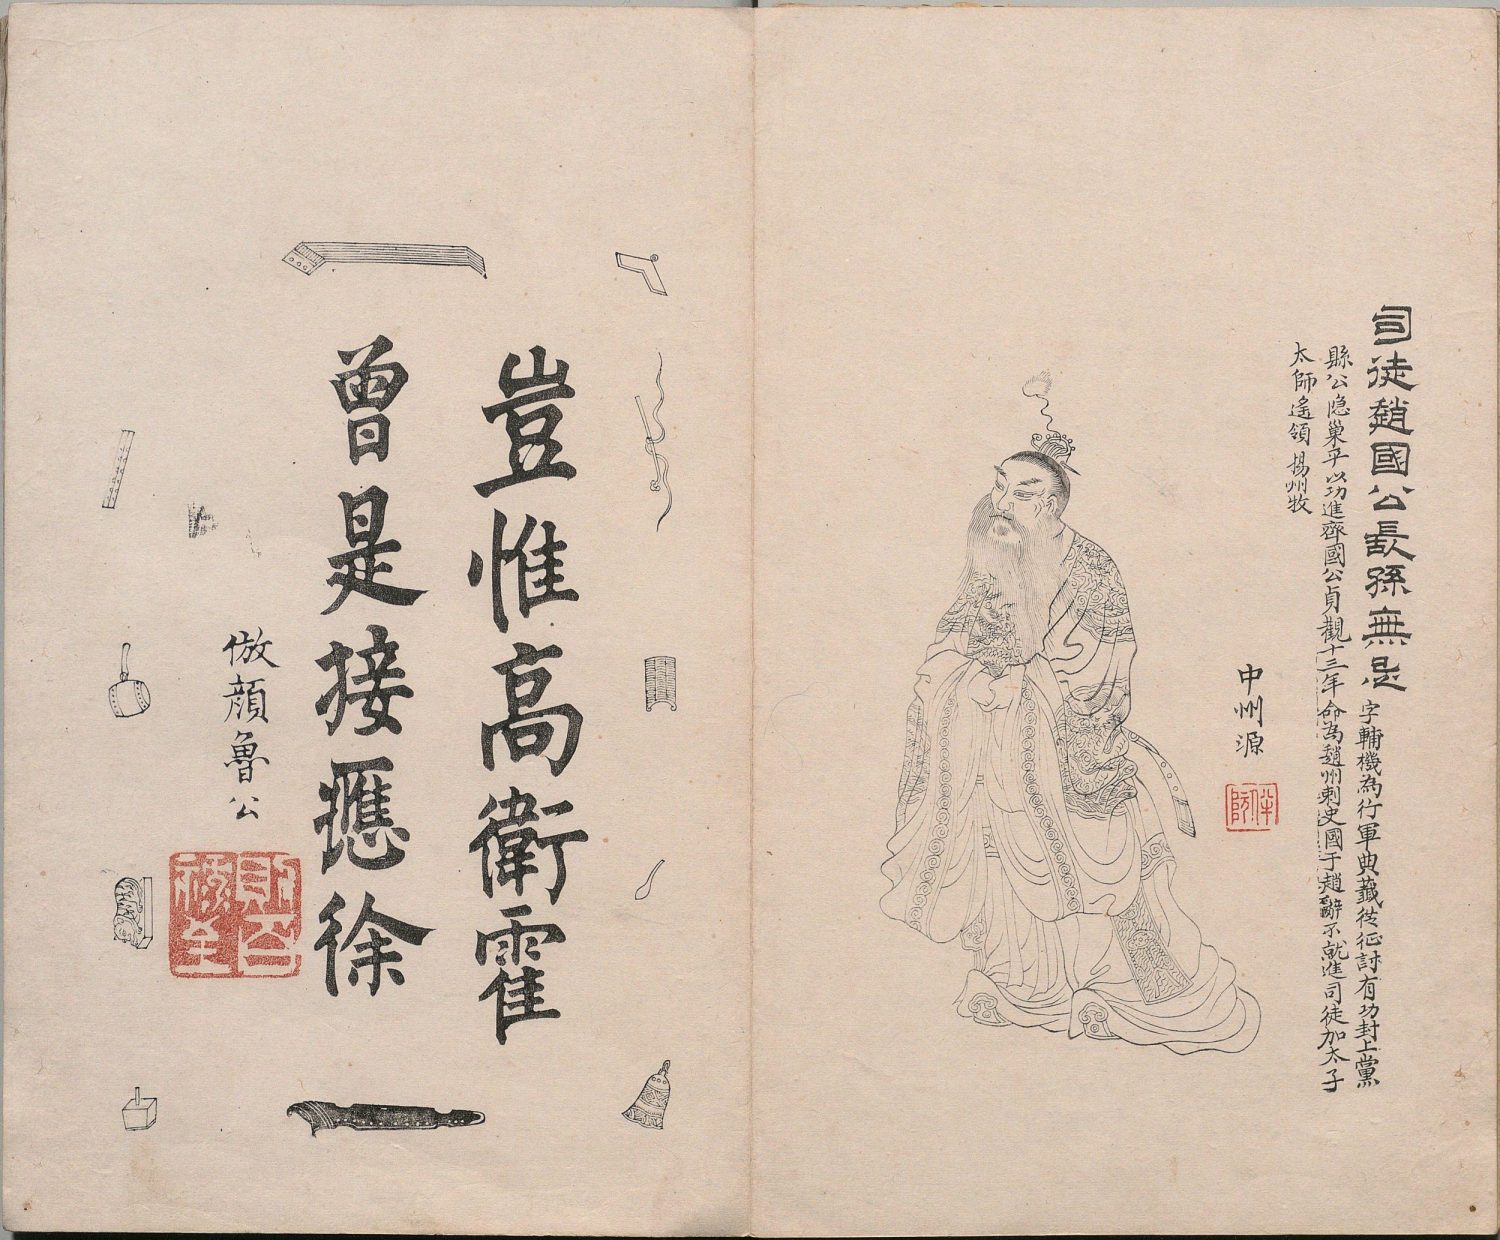 司徒趙國公長孫無忌
字輔機為行軍典籤從征討有功封上黨
縣公隐巢平以功進齊國公貞觀十三年命為趙州刺史國于趙辭不就進司徒加太子
太師遙領揚州牧
中州源
豈惟高衛霍
曾是接應徐
倣顏魯公